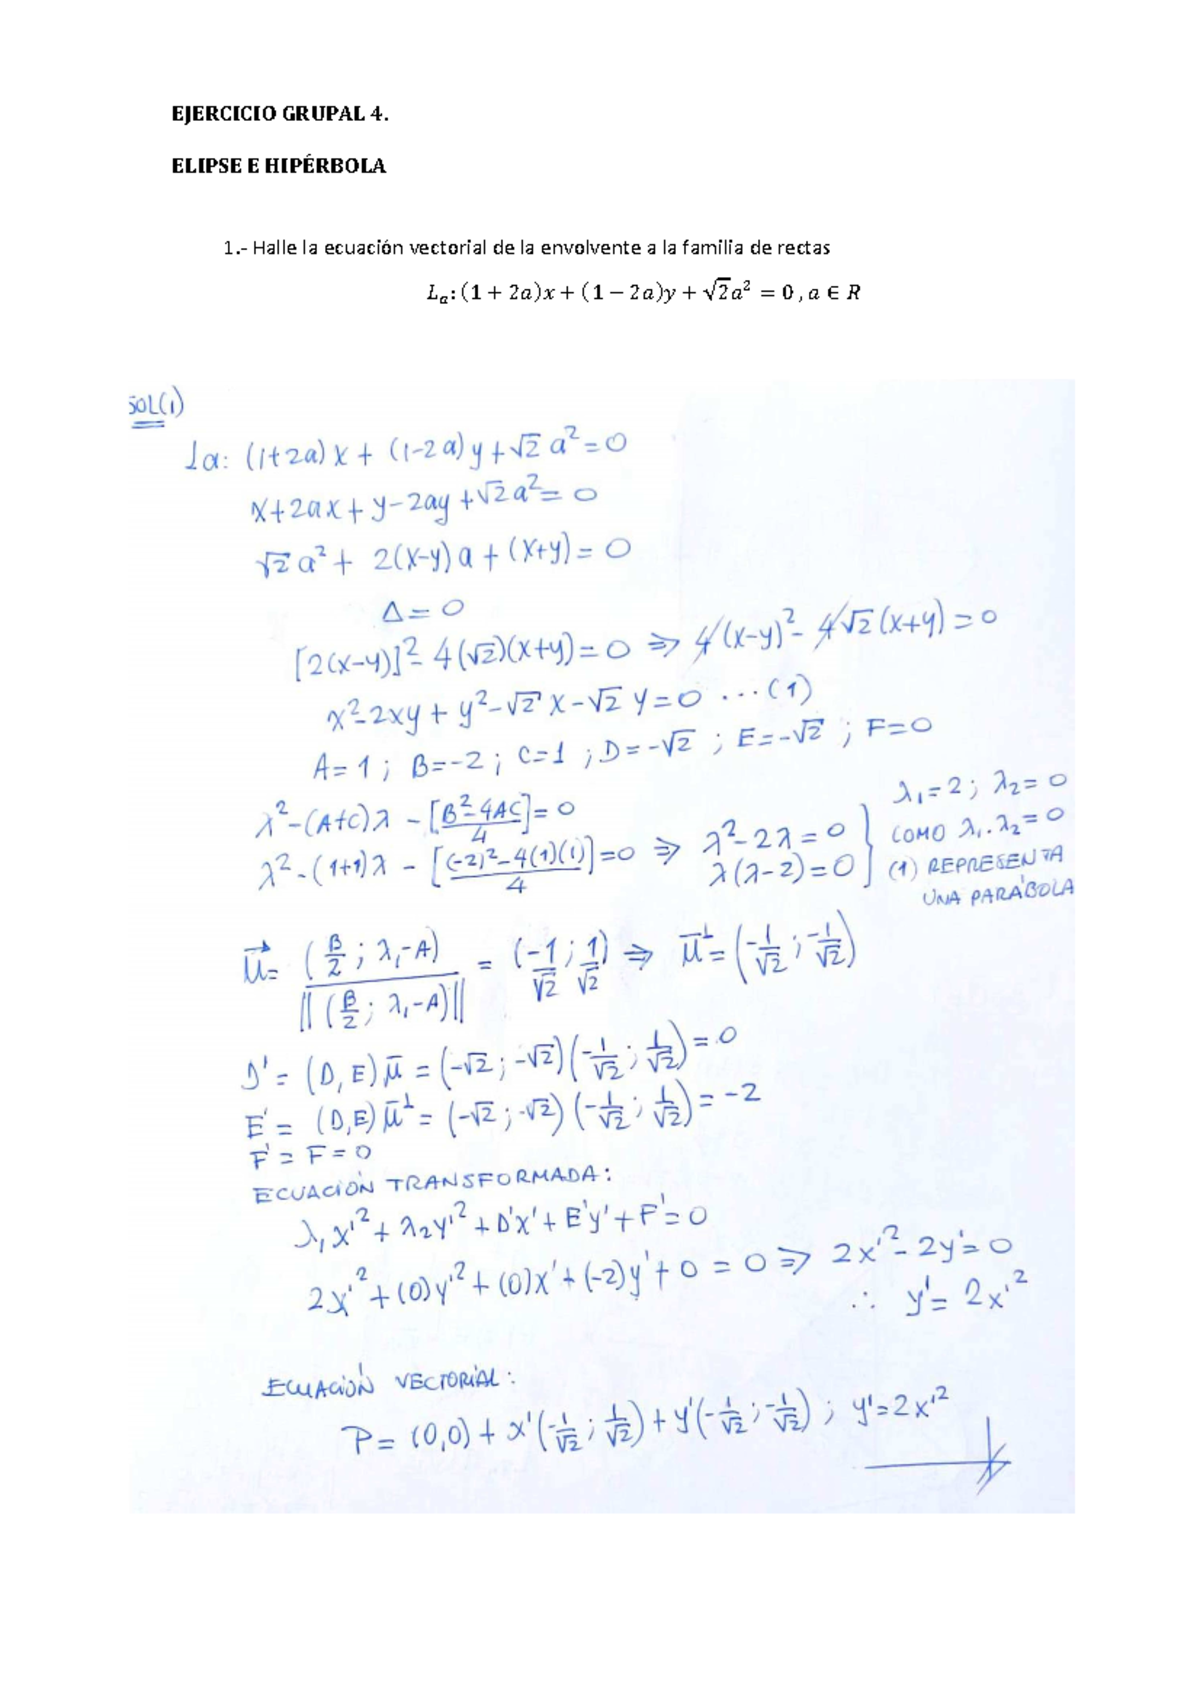 EJERCICIO GRUPAL 4.
ELIPSE E HIPÉRBOLA
1.- Halle la ecuación vectorial de la envolvente a la familia de rectas
Lₐ: (1 + 2a)x + (1 − 2a)y + √2a² = 0 , a ∈ R
SOL(1)
La: (1+2a) x + (1-2a) y + √2 a² = 0
x + 2ax + y - 2ay + √2 a² = 0
√2 a² + 2(x-y) a + (x+y) = 0
Δ = 0
[2(x-y)]² - 4(√2)(x+y) = 0 ⇒ 4(x-y)² - 4√2(x+y) = 0
x² - 2xy + y² - √2 x - √2 y = 0 ...(1)
A = 1 ; B = -2 ; C = 1 ; D = -√2 ; E = -√2 ; F = 0
λ² - (A+C)λ - [(B² - 4AC)/4] = 0
λ² - (1+1)λ - [((-2)² - 4(1)(1))/4] = 0 ⇒ λ² - 2λ = 0
λ(λ-2) = 0
λ₁ = 2 ; λ₂ = 0
COMO λ₁.λ₂ = 0
(1) REPRESENTA
UNA PARÁBOLA
u⃗ = (B/2 ; λ₁-A) / ||(B/2 ; λ₁-A)|| = (-1/√2 ; 1/√2) ⇒ u̅⊥ = (-1/√2 ; -1/√2)
D' = (D, E) u̅ = (-√2 ; -√2)(-1/√2 ; 1/√2) = 0
E' = (D,E) u̅⊥ = (-√2 ; -√2)(-1/√2 ; 1/√2) = -2
F' = F = 0
ECUACIÓN TRANSFORMADA:
λ₁x'² + λ₂y'² + D'x' + E'y' + F' = 0
2x'² + (0)y'² + (0)x' + (-2)y' + 0 = 0 ⇒ 2x'² - 2y' = 0
∴ y' = 2x'²
ECUACIÓN VECTORIAL:
P = (0,0) + x'(-1/√2 ; 1/√2) + y'(-1/√2 ; -1/√2) ; y' = 2x'²